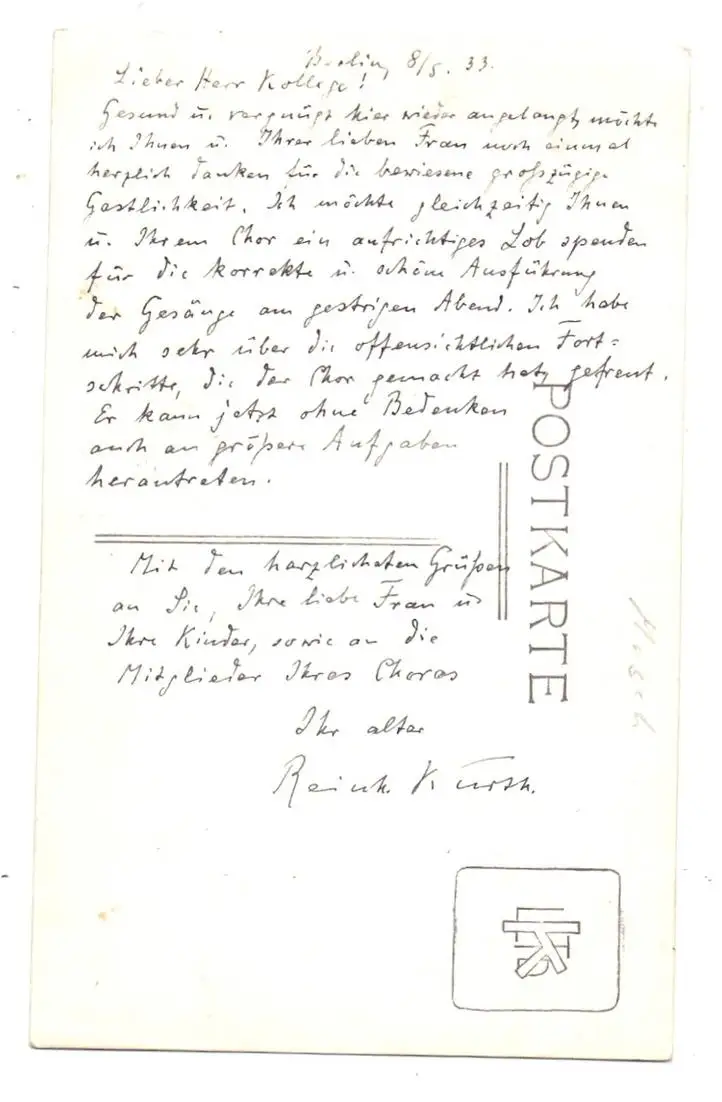 Berlin, 8/5. 33.
Lieber Herr Kollege!
Gesund u. vergnügt hier wieder angelangt, möchte
ich Ihnen u. Ihrer lieben Frau noch einmal
herzlich danken für die bewiesene großzügige
Gastlichkeit. Ich möchte gleichzeitig Ihnen
u. Ihrem Chor ein aufrichtiges Lob spenden
für die korrekte u. schöne Ausführung
der Gesänge am gestrigen Abend. Ich habe
mich sehr über die offensichtlichen Fort=
schritte, die der Chor gemacht hat, gefreut.
Er kann jetzt ohne Bedenken
auch an größere Aufgaben
herantreten.
Mit den herzlichsten Grüßen
an Sie, Ihre liebe Frau u.
Ihre Kinder, sowie an die
Mitglieder Ihres Chores
Ihr alter
Reinh. Kursch.
POSTKARTE